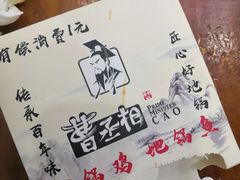 有偿消费1元
传承百年味
匠心好地锅
曹丞相
PRIME
MINISTER
CAO
锅鸡 地锅鱼